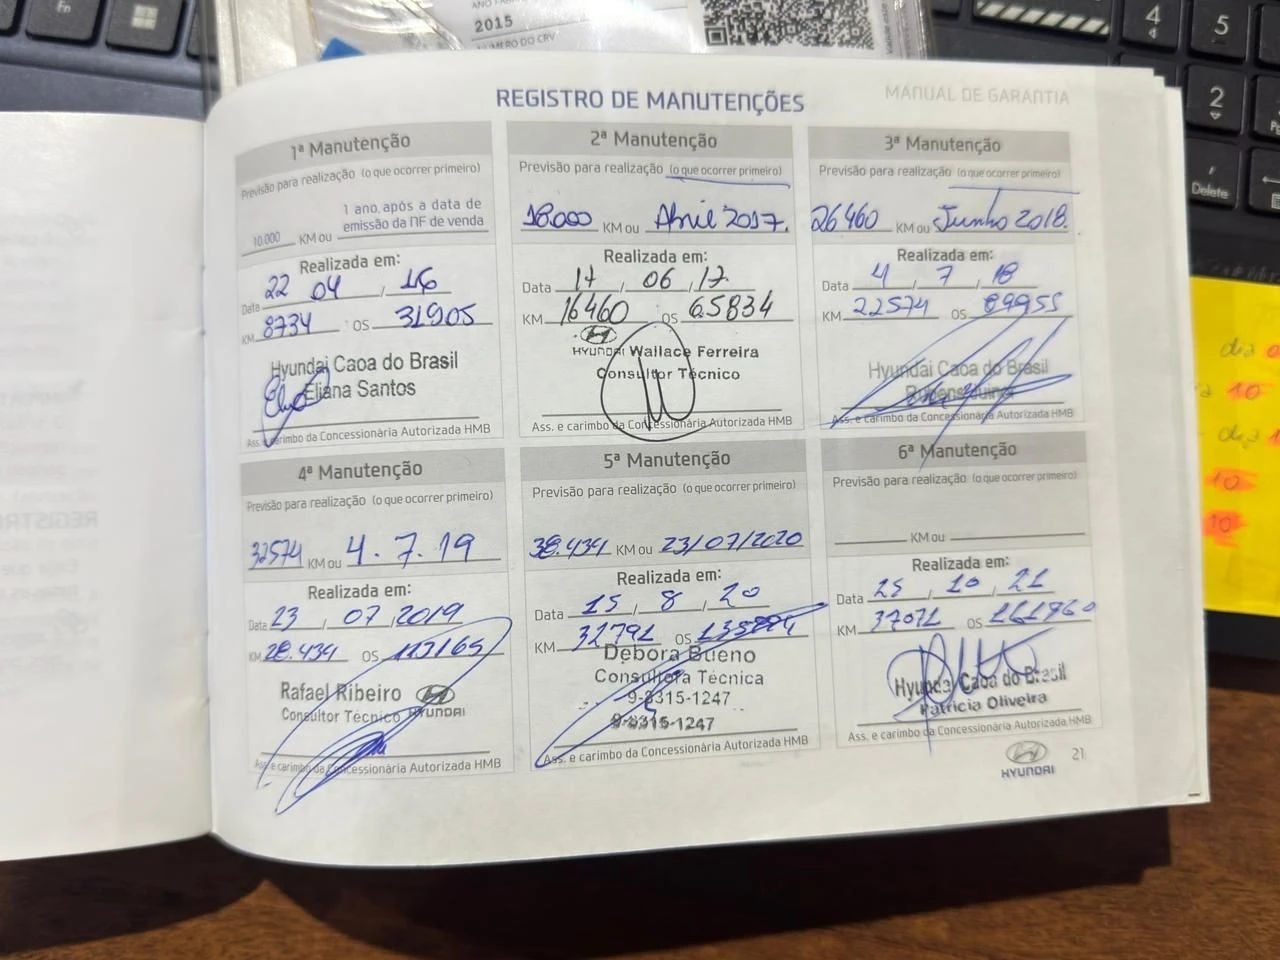 2015
NÚMERO DO CRV
REGISTRO DE MANUTENÇÕES
MANUAL DE GARANTIA
1ª Manutenção
Previsão para realização (o que ocorrer primeiro)
10.000 KM ou 1 ano, após a data de
emissão da NF de venda
Realizada em:
Data 22 04 , 16
KM 8734 OS 31905
Hyundai Caoa do Brasil
Eliana Santos
Ass. e carimbo da Concessionária Autorizada HMB
2ª Manutenção
Previsão para realização (o que ocorrer primeiro)
18.000 KM ou Abril 2017.
Realizada em:
Data 17 , 06 , 17
KM 16460 OS 65834
HYUNDAI Wallace Ferreira
Consultor Técnico
Ass. e carimbo da Concessionária Autorizada HMB
3ª Manutenção
Previsão para realização (o que ocorrer primeiro)
26460 KM ou Junho 2018.
Realizada em:
Data 4 , 7 , 18
KM 22574 OS 89955
Hyundai Caoa do Brasil
Ass. e carimbo da Concessionária Autorizada HMB
4ª Manutenção
Previsão para realização (o que ocorrer primeiro)
32574 KM ou 4.7.19
Realizada em:
Data 23 , 07 , 2019
KM 28.434 OS 113165
Rafael Ribeiro
Consultor Técnico HYUNDAI
Ass. e carimbo da Concessionária Autorizada HMB
5ª Manutenção
Previsão para realização (o que ocorrer primeiro)
38.434 KM ou 23/07/2020
Realizada em:
Data 15 , 8 , 20
KM 32791 OS
Debora Bueno
Consultora Técnica
9-8315-1247
9-8315-1247
Ass. e carimbo da Concessionária Autorizada HMB
6ª Manutenção
Previsão para realização (o que ocorrer primeiro)
KM ou
Realizada em:
Data 25 , 10 , 21
KM 37071 OS 161960
Hyundai Caoa do Brasil
Patricia Oliveira
Ass. e carimbo da Concessionária Autorizada HMB
HYUNDAI
21
Fn
4
5
2
Delete
dia
10
dia 1
10
10